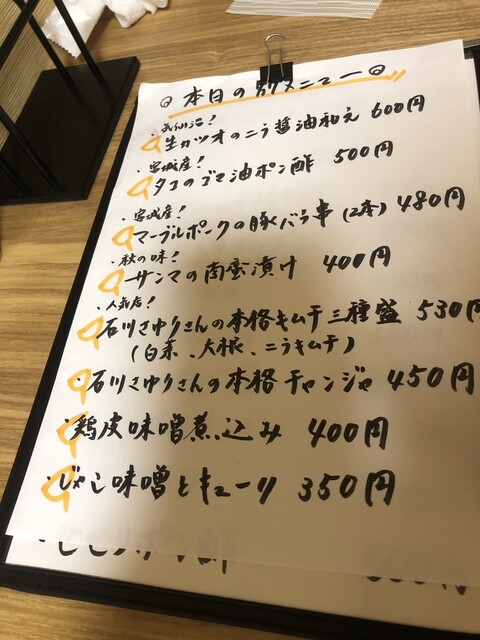 本日の別メニュー
・気仙沼!
生カツオのニラ醤油和え 600円
・宮城産!
タコのゴマ油ポン酢 500円
・宮城産!
マーブルポークの豚バラ串(2本) 480円
・秋の味!
サンマの南蛮漬け 400円
・人気店!
石川さゆりさんの本格キムチ三種盛 530円
(白菜、大根、ニラキムチ)
・石川さゆりさんの本格チャンジャ 450円
・鶏皮味噌煮込み 400円
・じゃこ味噌とキューリ 350円